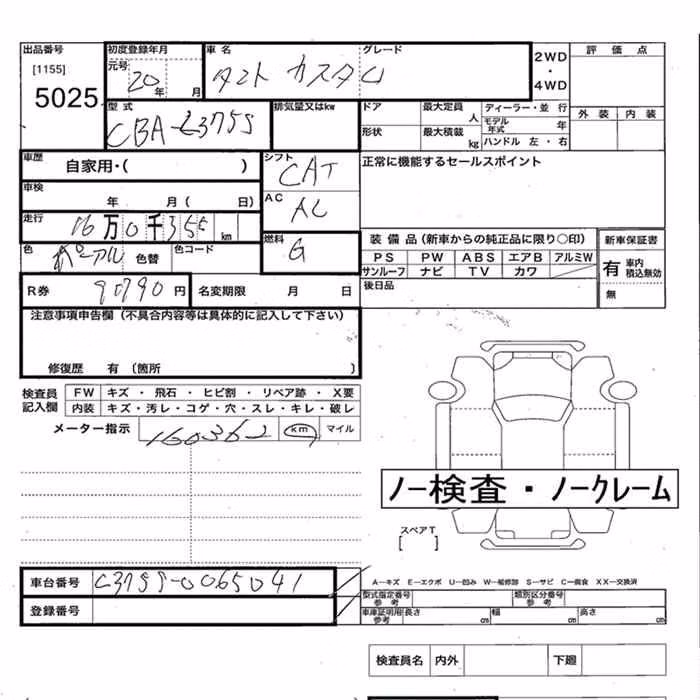 出品番号 初度登録年月 車名 グレード 2WD・4WD 評価点
[1155] 元号
5025 20年 月 タント カスタム
外装 内装
型式 排気量又はkw ドア 最大定員 人 ディーラー・並行
モデル年式 年
形状 最大積載 kg ハンドル 左・右
車歴 自家用・( ) シフト CAT 正常に機能するセールスポイント
車検 年 月 ( 日) AC AC
走行 16万0千355 km
色 パール 色替 色コード 燃料 G
装備品(新車からの純正品に限り○印) 新車保証書
PS PW ABS エアB アルミW
サンルーフ ナビ TV カワ
有 車内積込無効
無
R券 90790円 名変期限 月 日 後日品
注意事項申告欄(不具合内容等は具体的に記入して下さい)
修復歴 有 (箇所 )
検査員記入欄 FW キズ・飛石・ヒビ割・リペア跡・X要
内装 キズ・汚レ・コゲ・穴・スレ・キレ・破レ
メーター指示 160362 km マイル
ノー検査・ノークレーム
スペアT
[ ]
車台番号
登録番号
A—キズ E—エクボ U—凹み W—補修跡 S—サビ C—腐食 XX—交換済
型式指定番号 参考 類別区分番号 参考
車庫証明用 参考 長さ cm 幅 cm 高さ cm
検査員名 内外 下廻